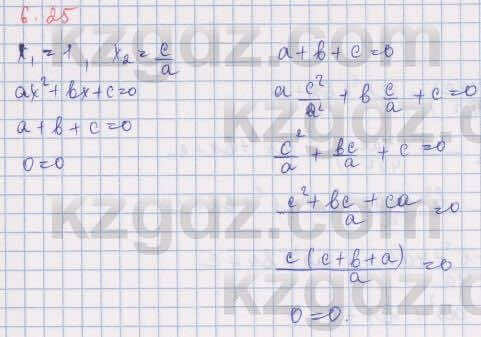 6.25
x₁ = 1, x₂ = c/a
ax² + bx + c = 0
a + b + c = 0
0 = 0
a + b + c = 0
a c²/a² + b c/a + c = 0
c²/a + bc/a + c = 0
(c² + bc + ca)/a = 0
c(c + b + a)/a = 0
0 = 0.
kzgdz.com
kzgdz.com
kzgdz.com
kzgdz.com